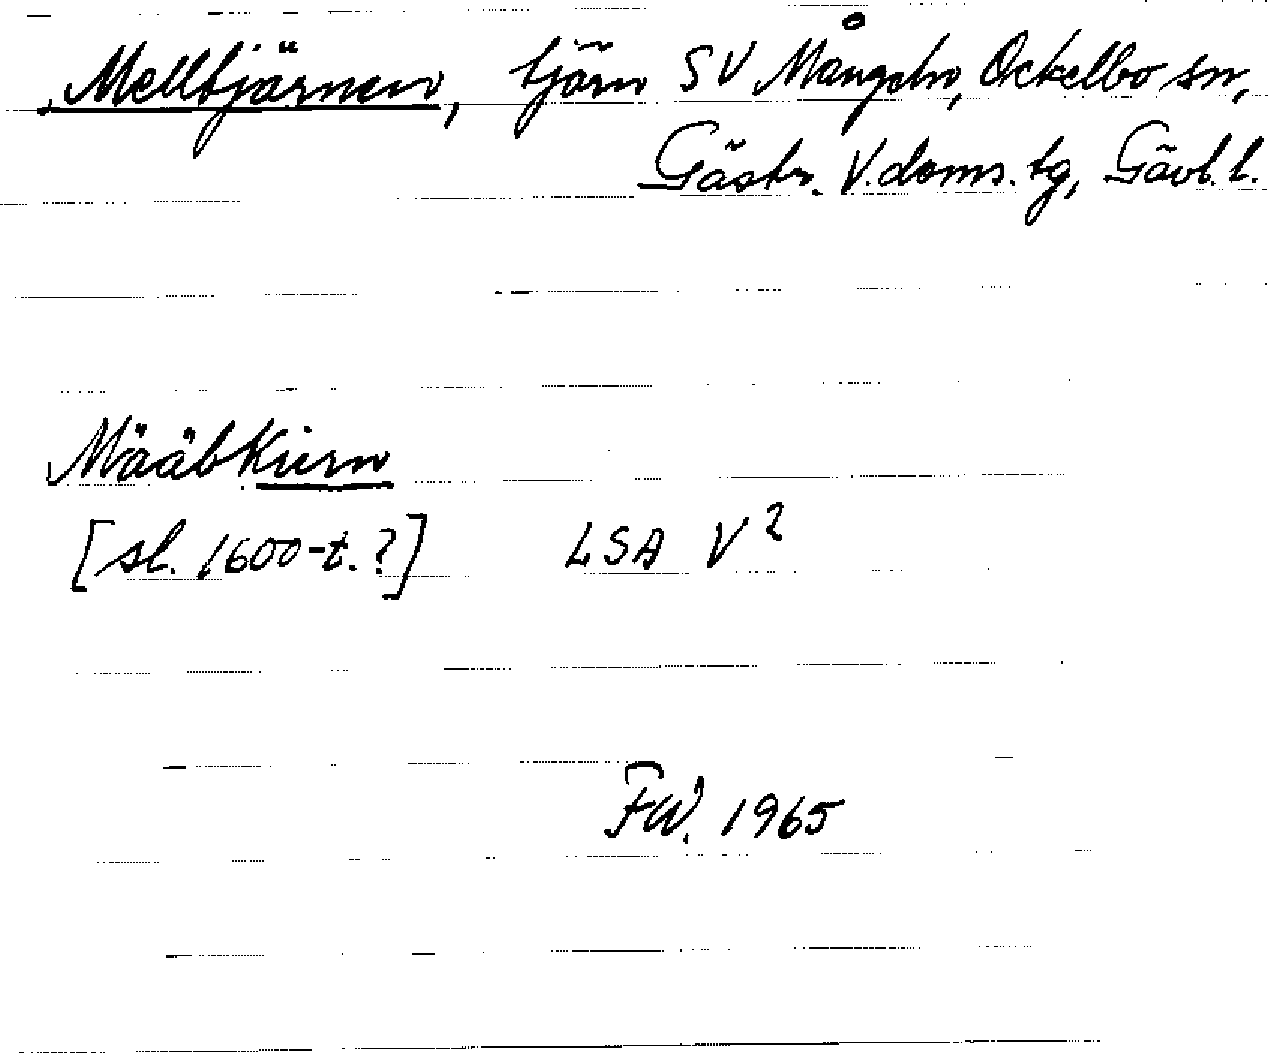 Melltjärnen, tjärn SV Mången, Ockelbo sn,
Gästr. V. doms. tg, Gävl. l.
Määbkiern
[sl. 1600-t.?] LSA V2
FW. 1965